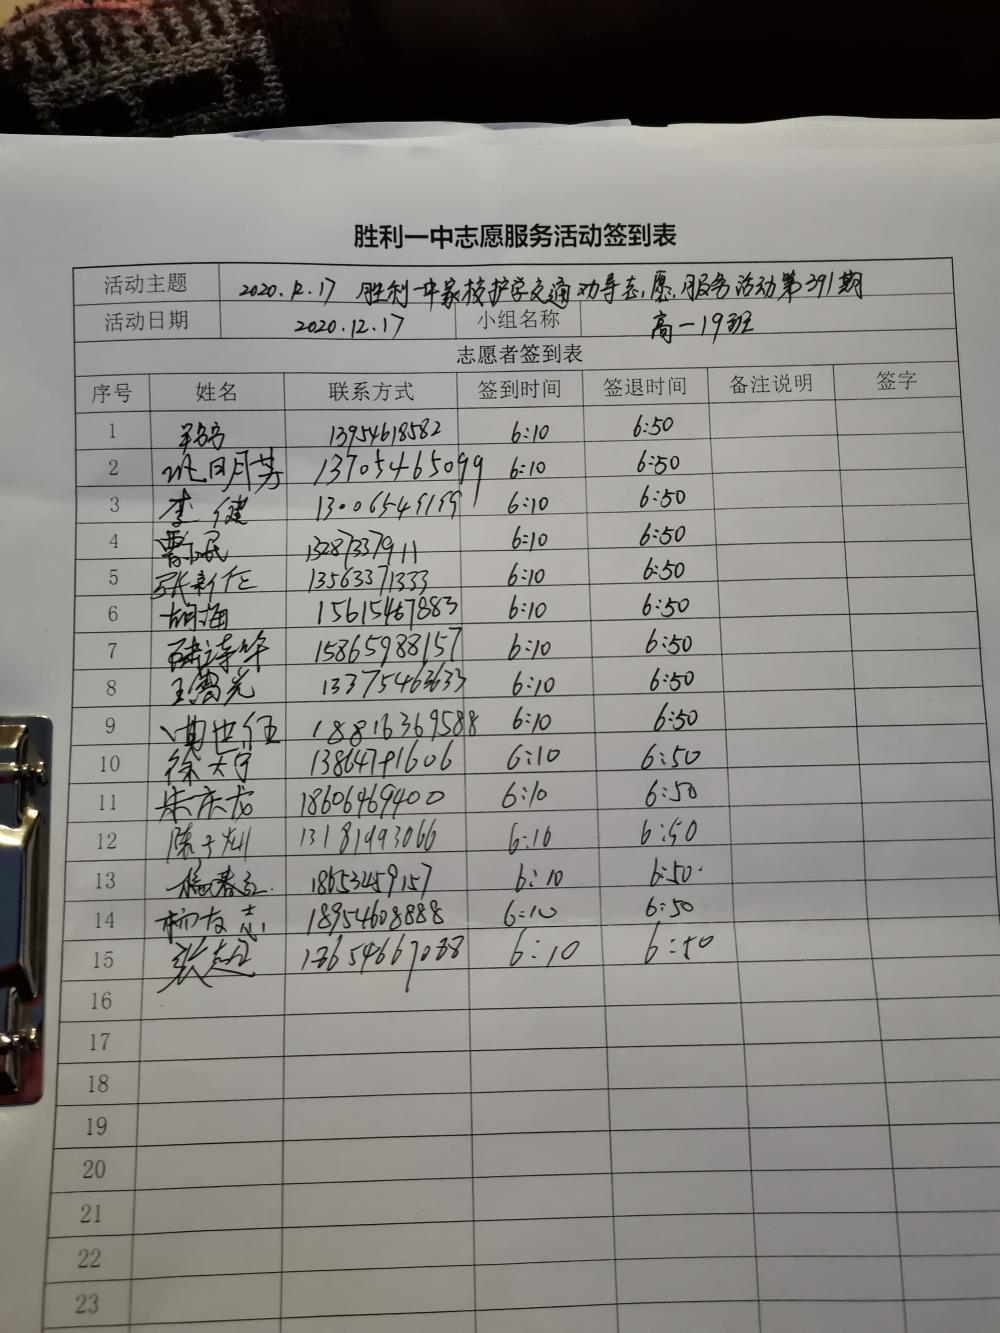 胜利一中志愿服务活动签到表
活动主题 2020.12.17 胜利一中家校护学交通劝导志愿服务活动第391期
活动日期 2020.12.17 小组名称 高一19班
志愿者签到表
序号 姓名 联系方式 签到时间 签退时间 备注说明 签字
1 13954618582 6:10 6:50
2 13705465099 6:10 6:50
3 李健 13006549199 6:10 6:50
4 13287337911 6:10 6:50
5 13563371333 6:10 6:50
6 胡海 15615467883 6:10 6:50
7 15865988157 6:10 6:50
8 13375463633 6:10 6:50
9 18816369588 6:10 6:50
10 13864791606 6:10 6:50
11 宋庆龙 18606469400 6:10 6:50
12 13181993066 6:10 6:50
13 18653459157 6:10 6:50
14 柳友志 18954608888 6:10 6:50
15 张超 13654667038 6:10 6:50
16
17
18
19
20
21
22
23